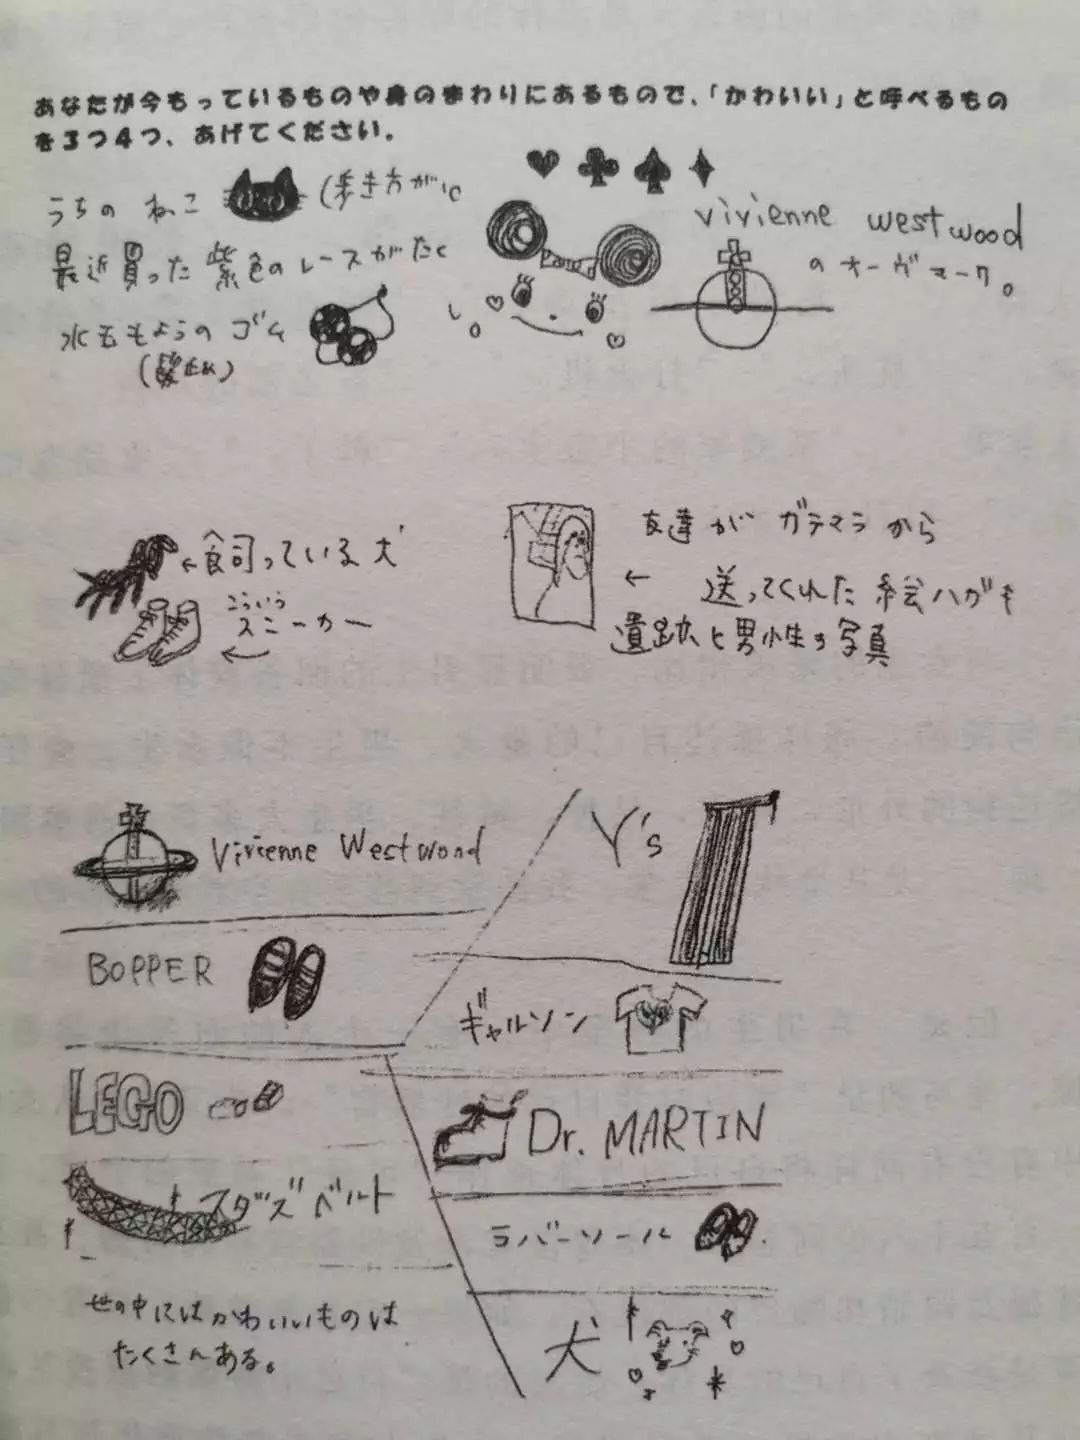 あなたが今もっているものや身のまわりにあるもので、「かわいい」と呼べるもの
を3つ4つ、あげてください。
うちの ねこ (歩き方が
最近買った紫色のレースがたく
水玉もようの ゴム
(髪止め)
vivienne westwood
のオーヴマーク。
←飼っている犬
こういう
スニーカー
←
友達が ガテマラから
← 送ってくれた 絵ハガキ
遺跡と男性の写真
Vivienne Westwood
Y's
BOPPER
ギャルソン
LEGO
Dr. MARTIN
スタッズベルト
ラバーソール
世の中にはかわいいものは
たくさんある。
犬